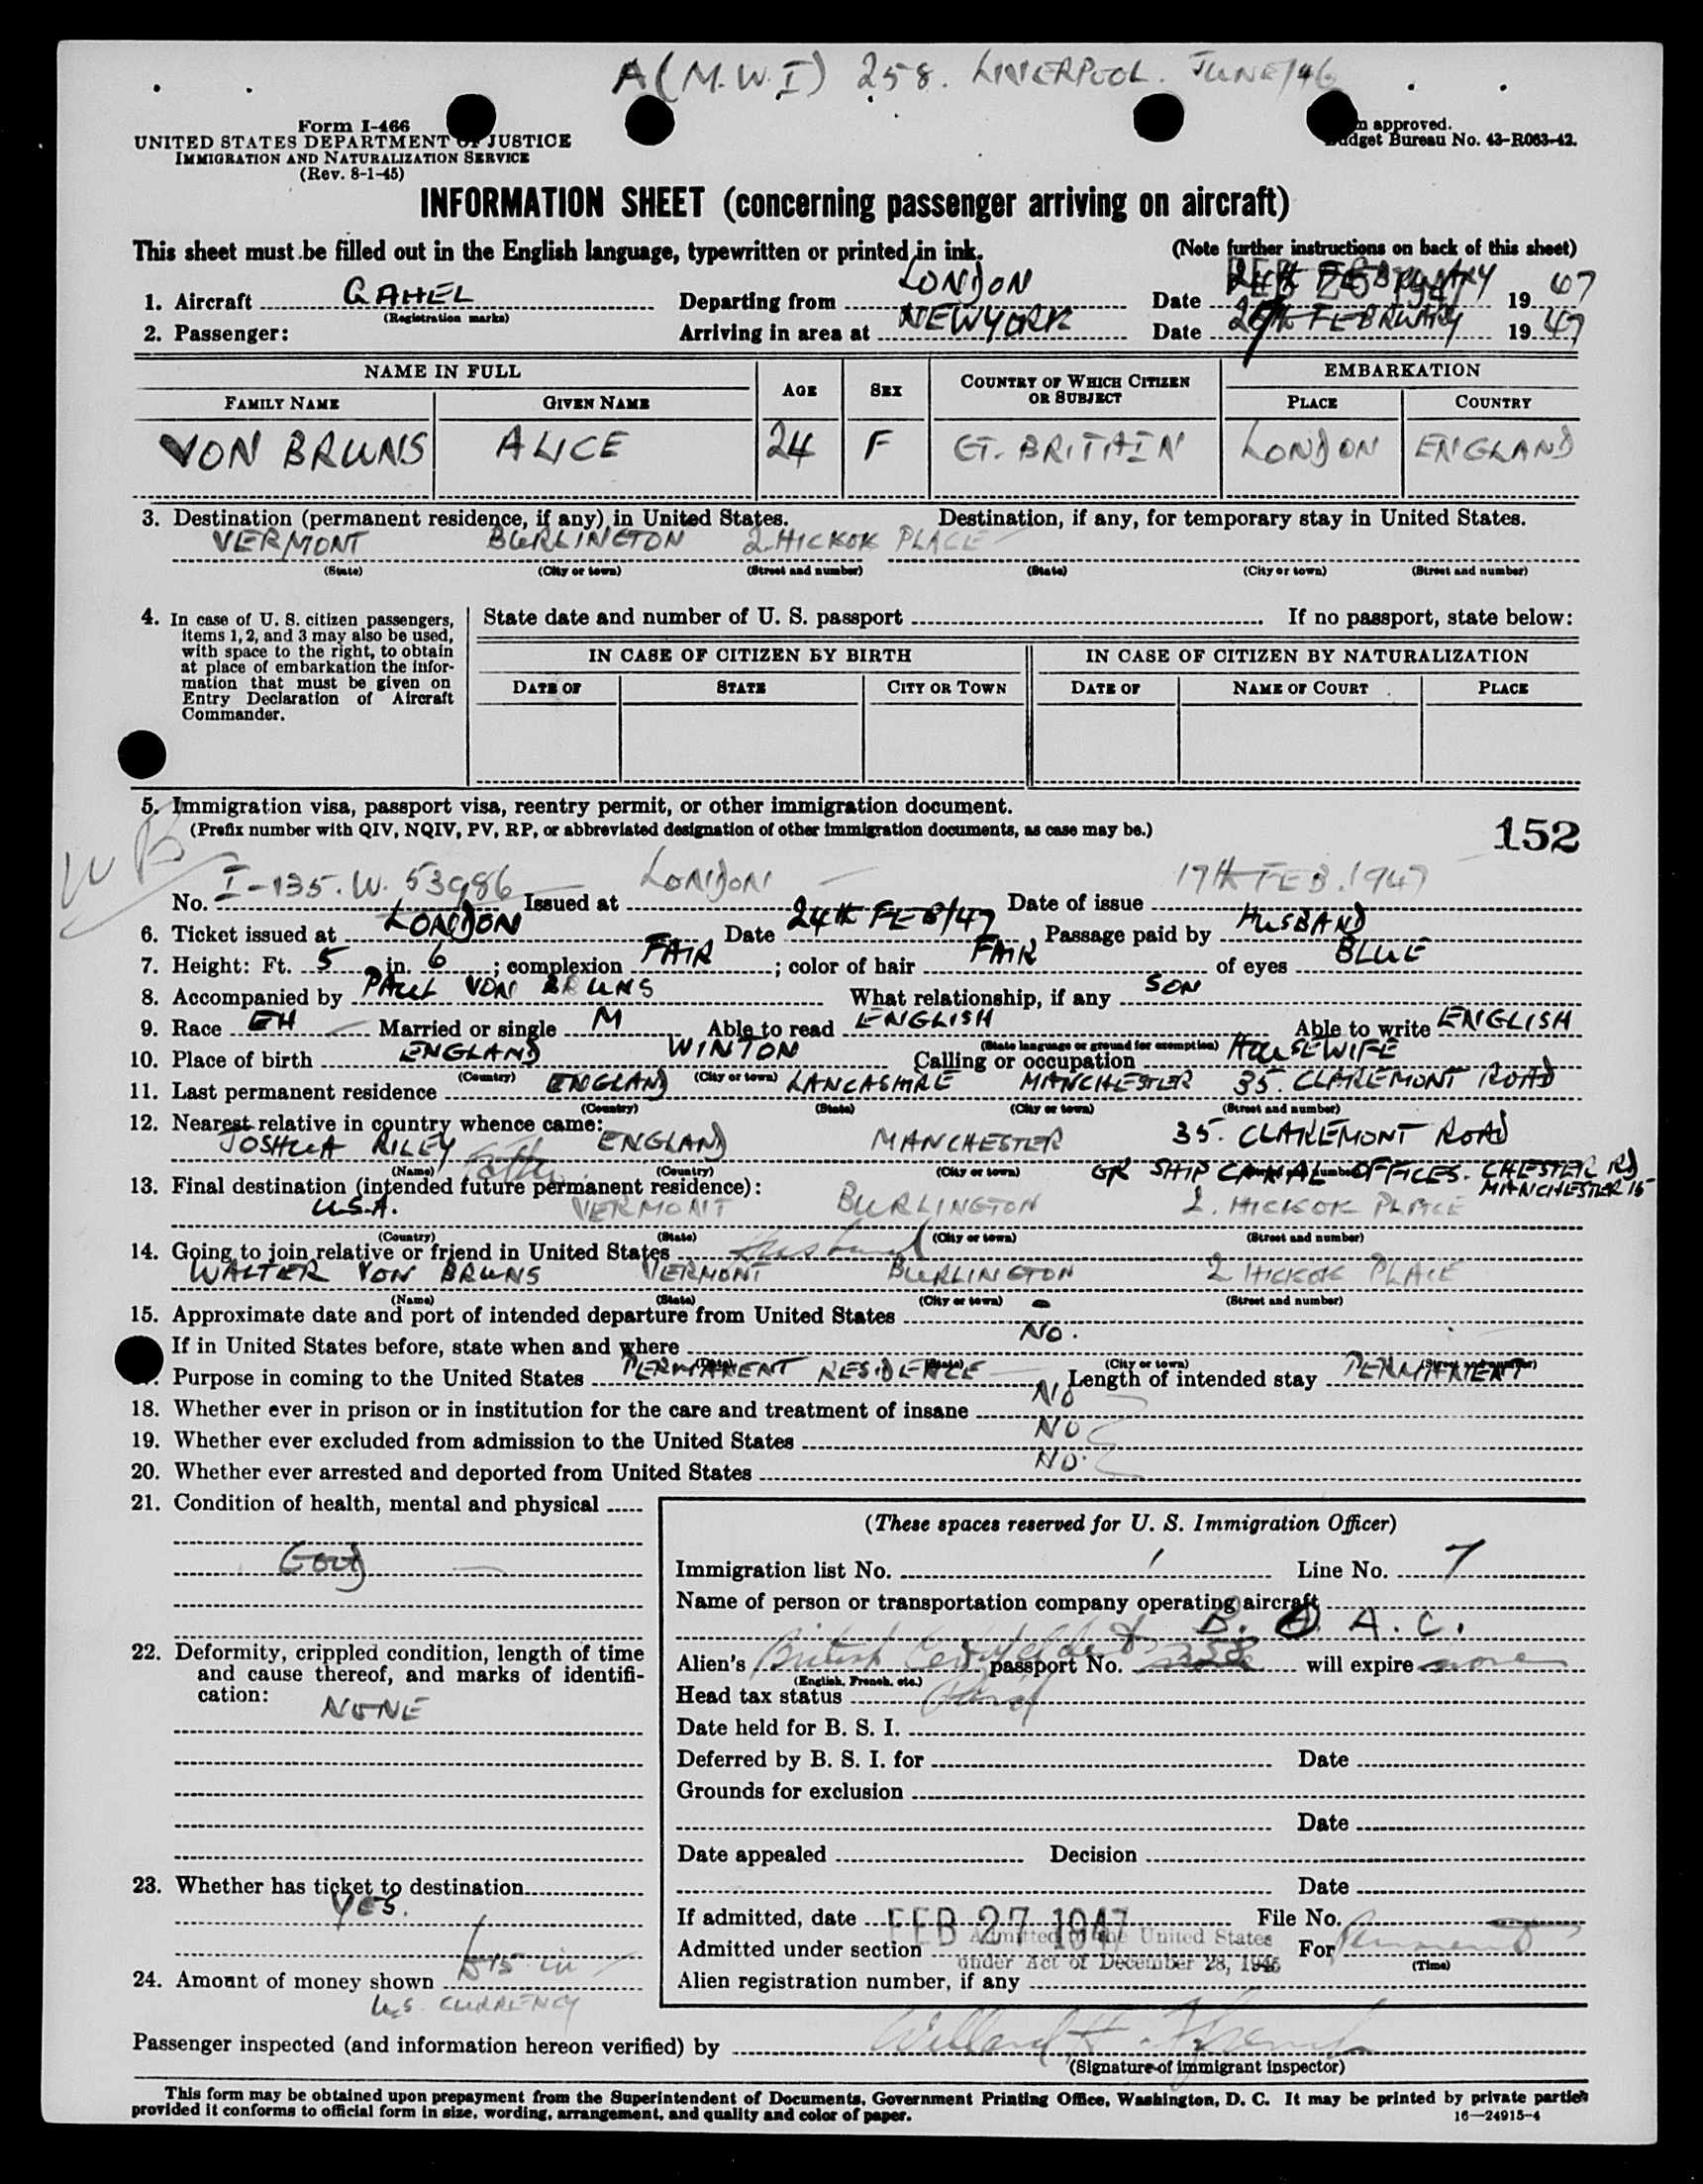 A (M.W.I) 258. LIVERPOOL. JUNE/46
Form I-466
UNITED STATES DEPARTMENT OF JUSTICE
IMMIGRATION AND NATURALIZATION SERVICE
(Rev. 8-1-45)
approved.
Budget Bureau No. 43-R063-42.
INFORMATION SHEET (concerning passenger arriving on aircraft)
This sheet must be filled out in the English language, typewritten or printed in ink. (Note further instructions on back of this sheet)
1. Aircraft GAHEL Departing from LONDON Date 24th FEBRUARY 1947
(Registration marks)
2. Passenger: Arriving in area at NEW YORK Date FEBRUARY 1947
NAME IN FULL AGE SEX COUNTRY OF WHICH CITIZEN OR SUBJECT EMBARKATION
FAMILY NAME GIVEN NAME PLACE COUNTRY
VON BRUNS ALICE 24 F GT. BRITAIN LONDON ENGLAND
3. Destination (permanent residence, if any) in United States. Destination, if any, for temporary stay in United States.
VERMONT BURLINGTON 2 HICKOK PLACE
(State) (City or town) (Street and number) (State) (City or town) (Street and number)
4. In case of U. S. citizen passengers, items 1, 2, and 3 may also be used, with space to the right, to obtain at place of embarkation the information that must be given on Entry Declaration of Aircraft Commander.
State date and number of U. S. passport If no passport, state below:
IN CASE OF CITIZEN BY BIRTH IN CASE OF CITIZEN BY NATURALIZATION
DATE OF STATE CITY OR TOWN DATE OF NAME OF COURT PLACE
5. Immigration visa, passport visa, reentry permit, or other immigration document.
(Prefix number with QIV, NQIV, PV, RP, or abbreviated designation of other immigration documents, as case may be.)
152
WB
No. I-135. W. 53986 Issued at LONDON Date of issue 17th FEB. 1947
6. Ticket issued at LONDON Date 24th FEB/47 Passage paid by HUSBAND
7. Height: Ft. 5 in. 6; complexion FAIR; color of hair FAIR of eyes BLUE
8. Accompanied by PAUL VON BRUNS What relationship, if any SON
9. Race EH Married or single M Able to read ENGLISH Able to write ENGLISH
(State language or ground for exemption)
10. Place of birth ENGLAND WINTON Calling or occupation HOUSEWIFE
(Country) (City or town)
11. Last permanent residence ENGLAND LANCASHIRE MANCHESTER 35. CLAREMONT ROAD
(Country) (State) (City or town) (Street and number)
12. Nearest relative in country whence came:
JOSHUA RILEY Father ENGLAND MANCHESTER 35. CLAREMONT ROAD
(Name) (Country) (City or town)
OR SHIP CANAL OFFICES. CHESTER RD MANCHESTER 15
13. Final destination (intended future permanent residence):
U.S.A. VERMONT BURLINGTON 2. HICKOK PLACE
(Country) (State) (City or town) (Street and number)
14. Going to join relative or friend in United States husband
WALTER VON BRUNS VERMONT BURLINGTON 2 HICKOK PLACE
(Name) (State) (City or town) (Street and number)
15. Approximate date and port of intended departure from United States -
If in United States before, state when and where NO.
(Date) (State) (City or town) (Street and number)
Purpose in coming to the United States PERMANENT RESIDENCE Length of intended stay PERMANENT
18. Whether ever in prison or in institution for the care and treatment of insane NO
19. Whether ever excluded from admission to the United States NO
20. Whether ever arrested and deported from United States NO.
21. Condition of health, mental and physical
Good
22. Deformity, crippled condition, length of time and cause thereof, and marks of identification:
NONE
23. Whether has ticket to destination
YES.
24. Amount of money shown $15 in
U.S. CURRENCY
(These spaces reserved for U. S. Immigration Officer)
Immigration list No. 1 Line No. 7
Name of person or transportation company operating aircraft
B. O. A. C.
Alien's British passport No. 258 will expire none
(English, French, etc.)
Head tax status Paid
Date held for B. S. I.
Deferred by B. S. I. for Date
Grounds for exclusion
Date
Date appealed Decision
Date
If admitted, date FEB 27 1947 File No.
Admitted under section Admitted to the United States under Act of December 28, 1945 For Permanent
(Time)
Alien registration number, if any
Passenger inspected (and information hereon verified) by Willard H.
(Signature of immigrant inspector)
This form may be obtained upon prepayment from the Superintendent of Documents, Government Printing Office, Washington, D. C. It may be printed by private parties
provided it conforms to official form in size, wording, arrangement, and quality and color of paper. 16—24915-4